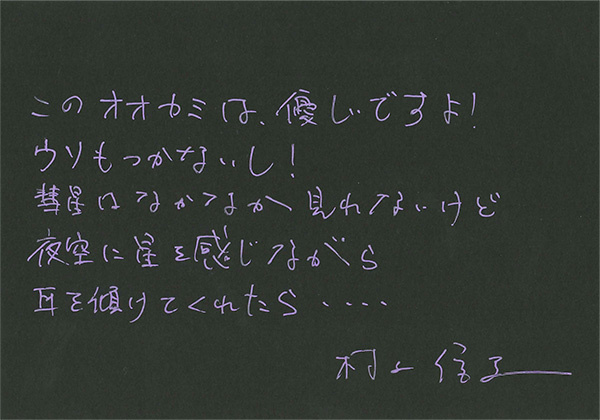 このオオカミは、優しいですよ!
ウソもつかないし!
彗星はなかなか見れないけど
夜空に星を感じながら
耳を傾けてくれたら・・・・
村上信子